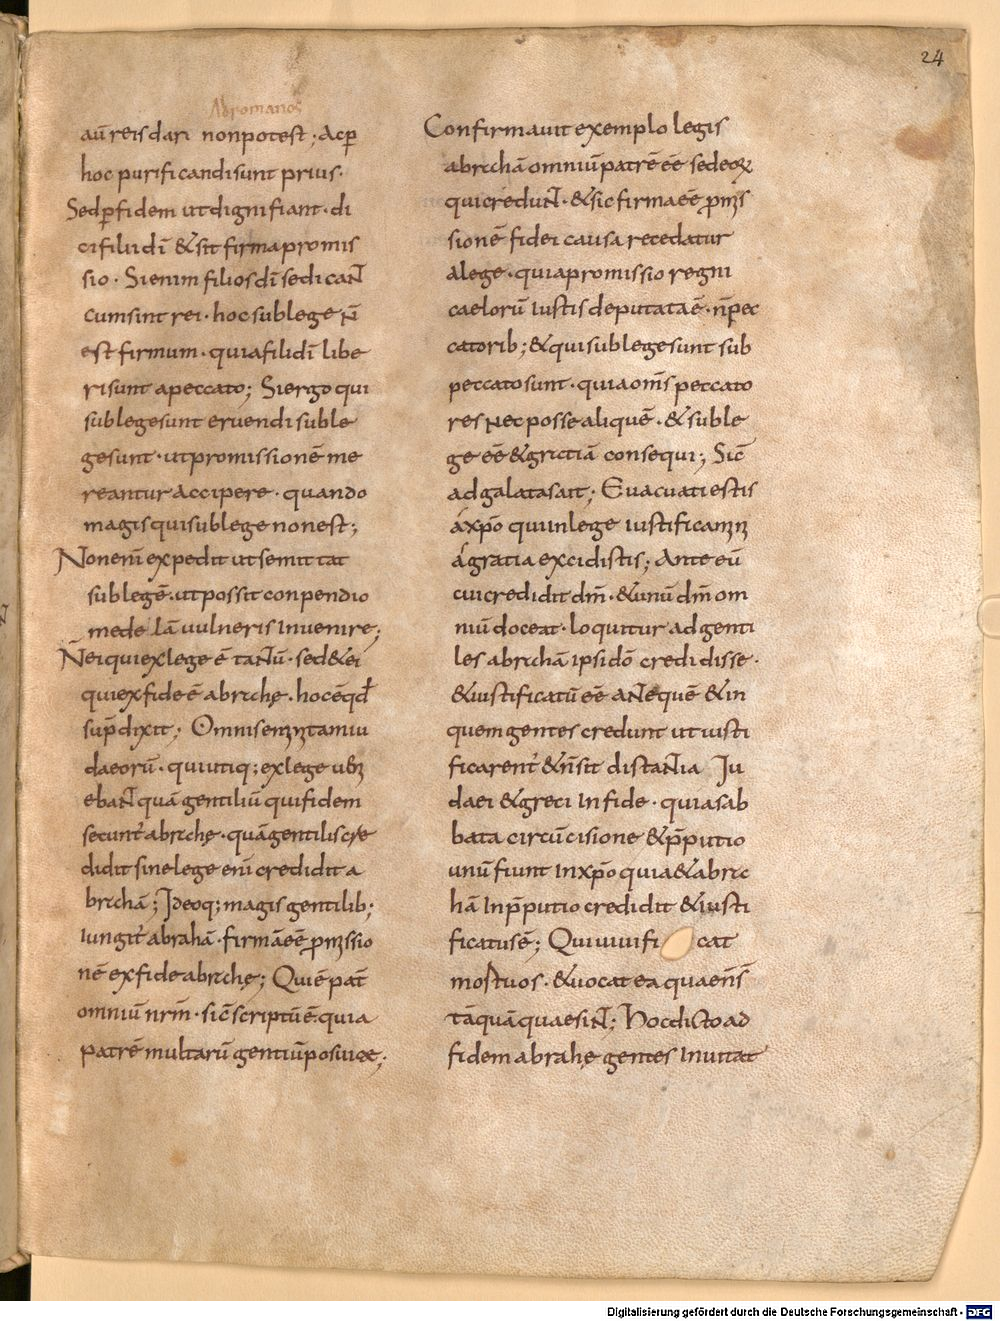 24
Ad romanos
aut̄ reis dari non potest; Ac ꝑ
hoc purificandi sunt prius·
Sed ꝑ fidem ut digni fiant· di
ci filii dī & sit firma promis
sio· Si enim filios dī se dicaNt
cum sint rei· hoc sub lege N̄
est firmum· quia filii dī libe
ri sunt a peccato; Si ergo qui
sub lege sunt eruendi sub le
ge sunt· ut promissionē me
reantur accipere· quando
magis qui sub lege non est;
Non eni expedit ut se mittat
sub legē· ut possit conpendio
medelā uulneris inuenire;
N̄ ei qui ex lege ē taNtū· sed & ei
qui ex fide ē abrahę· hoc ē qd̄
sup̄ dixit; Omni semini tam iu
daeorū· qui utiq; ex lege
quā gentiliū qui fidem
secunt̄ abrahę· quā gentilis cre
didit sine lege eni credidit a
brahā; Ideoq; magis gentilib;
iungit̄ abrahā· firmā eē promissio
nē ex fide abrahę; Qui ē pat̄
omniū nrm̄· sic̄ scriptū ē· quia
patrē multarū gentiū posui te;
Confirmauit exemplo legis
abrahā omniū patrē eē sed eoꝝ
qui creduNt· & sic firma eē promis
sionē fidei causa recedatur
a lege· quia promissio regni
caelorū iustis deputata ē· n̄ pec
catorib; & qui sub lege sunt sub
peccato sunt· quia om̄s peccato
res Nec posse aliquē· & sub le
ge eē & gratiā consequi; Sic̄
ad galatas ait; Euacuati estis
a xp̄o qui in lege iustificamini
a gratia excidistis; Ante eū
cui credidit dm̄· & unū dm̄ om
niū doceat· loquitur ad genti
les abrahā ipsi dō credidisse·
& iustificatū eē aNte quē & in
quem gentes credunt ut iusti
ficarent̄ & n̄ sit distaNtia Iu
daei & greci in fide· quia sab
bata circūcisione & p̄putio
unū fiunt in xp̄o quia & abra
hā in p̄putio credidit & iusti
ficatus ē; Qui uiuifi cat
mortuos· & uocat ea quae n̄ s̄
tāquā quae siNt; Hoc dicto ad
fidem abrahę gentes inuitat
Digitalisierung gefördert durch die Deutsche Forschungsgemeinschaft - DFG